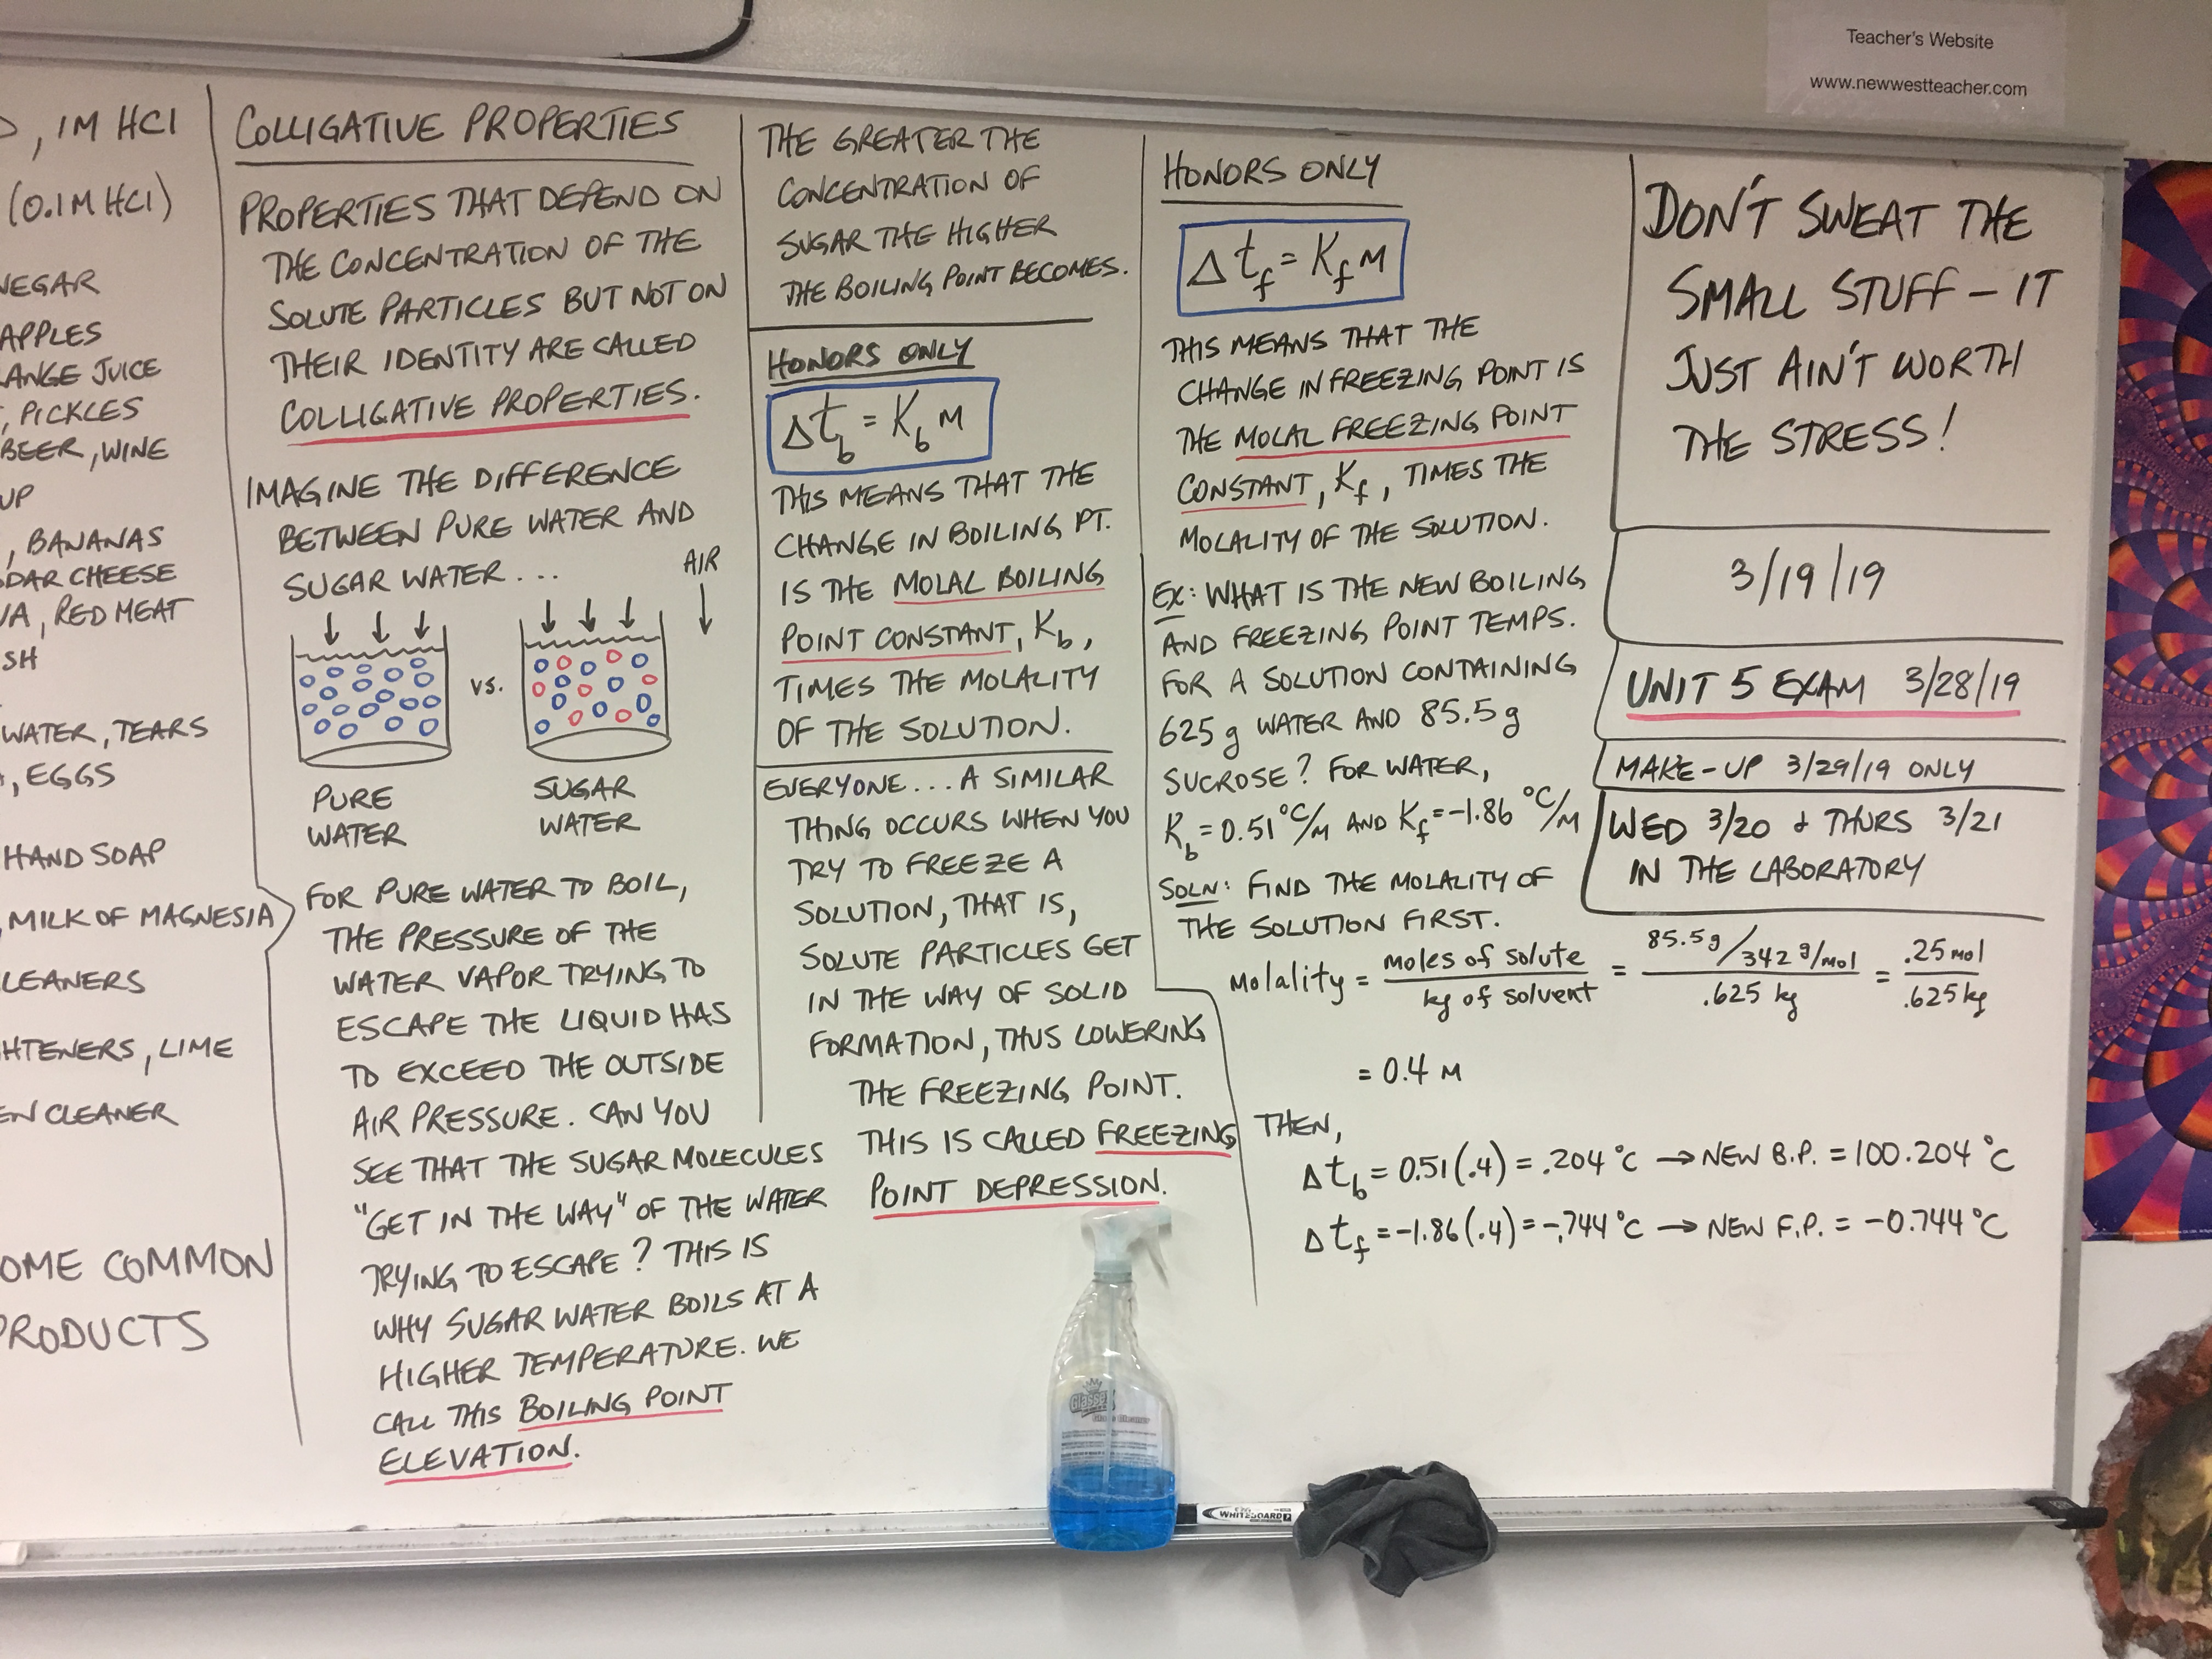 Teacher's Website
www.newwestteacher.com
, 1M HCl
(0.1M HCl)
APPLES
JUICE
, PICKLES
BEER, WINE
, BANANAS
CHEESE
, RED MEAT
WATER, TEARS
, EGGS
HAND SOAP
, MILK OF MAGNESIA
, LIME
CLEANER
COMMON
PRODUCTS
COLLIGATIVE PROPERTIES
PROPERTIES THAT DEPEND ON
THE CONCENTRATION OF THE
SOLUTE PARTICLES BUT NOT ON
THEIR IDENTITY ARE CALLED
COLLIGATIVE PROPERTIES.
IMAGINE THE DIFFERENCE
BETWEEN PURE WATER AND
SUGAR WATER...
AIR
VS.
PURE WATER
SUGAR WATER
FOR PURE WATER TO BOIL,
THE PRESSURE OF THE
WATER VAPOR TRYING TO
ESCAPE THE LIQUID HAS
TO EXCEED THE OUTSIDE
AIR PRESSURE. CAN YOU
SEE THAT THE SUGAR MOLECULES
"GET IN THE WAY" OF THE WATER
TRYING TO ESCAPE? THIS IS
WHY SUGAR WATER BOILS AT A
HIGHER TEMPERATURE. WE
CALL THIS BOILING POINT
ELEVATION.
THE GREATER THE
CONCENTRATION OF
SUGAR THE HIGHER
THE BOILING POINT BECOMES.
HONORS ONLY
Δt_b = K_b M
THIS MEANS THAT THE
CHANGE IN BOILING PT.
IS THE MOLAL BOILING
POINT CONSTANT, K_b,
TIMES THE MOLALITY
OF THE SOLUTION.
EVERYONE... A SIMILAR
THING OCCURS WHEN YOU
TRY TO FREEZE A
SOLUTION, THAT IS,
SOLUTE PARTICLES GET
IN THE WAY OF SOLID
FORMATION, THUS LOWERING
THE FREEZING POINT.
THIS IS CALLED FREEZING
POINT DEPRESSION.
HONORS ONLY
Δt_f = K_f M
THIS MEANS THAT THE
CHANGE IN FREEZING POINT IS
THE MOLAL FREEZING POINT
CONSTANT, K_f, TIMES THE
MOLALITY OF THE SOLUTION.
EX: WHAT IS THE NEW BOILING
AND FREEZING POINT TEMPS.
FOR A SOLUTION CONTAINING
625 g WATER AND 85.5 g
SUCROSE? FOR WATER,
K_b = 0.51 °C/M AND K_f = -1.86 °C/M
SOLN: FIND THE MOLALITY OF
THE SOLUTION FIRST.
Molality = moles of solute / kg of solvent = 85.5g/342 g/mol / .625 kg = .25 mol / .625 kg
= 0.4 M
THEN,
Δt_b = 0.51(.4) = .204 °C → NEW B.P. = 100.204 °C
Δt_f = -1.86(.4) = -.744 °C → NEW F.P. = -0.744 °C
DON'T SWEAT THE
SMALL STUFF - IT
JUST AIN'T WORTH
THE STRESS!
3/19/19
UNIT 5 EXAM 3/28/19
MAKE-UP 3/29/19 ONLY
WED 3/20 & THURS 3/21
IN THE LABORATORY
WHITEBOARD